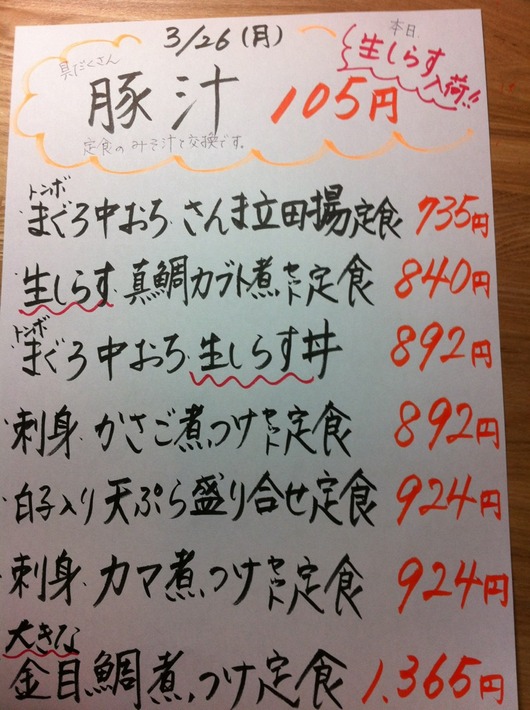 3/26(月)
本日
生しらす
入荷!!
具だくさん
豚汁 105円
定食のみそ汁と交換です。
トンボ
まぐろ中おち さんま立田揚定食 735円
生しらす 真鯛カブト煮セット定食 840円
トンボ
まぐろ中おち 生しらす丼 892円
刺身 かさご煮つけセット定食 892円
白子入り 天ぷら盛り合せ定食 924円
刺身 カマ煮つけセット定食 924円
大きな
金目鯛煮つけ定食 1,365円